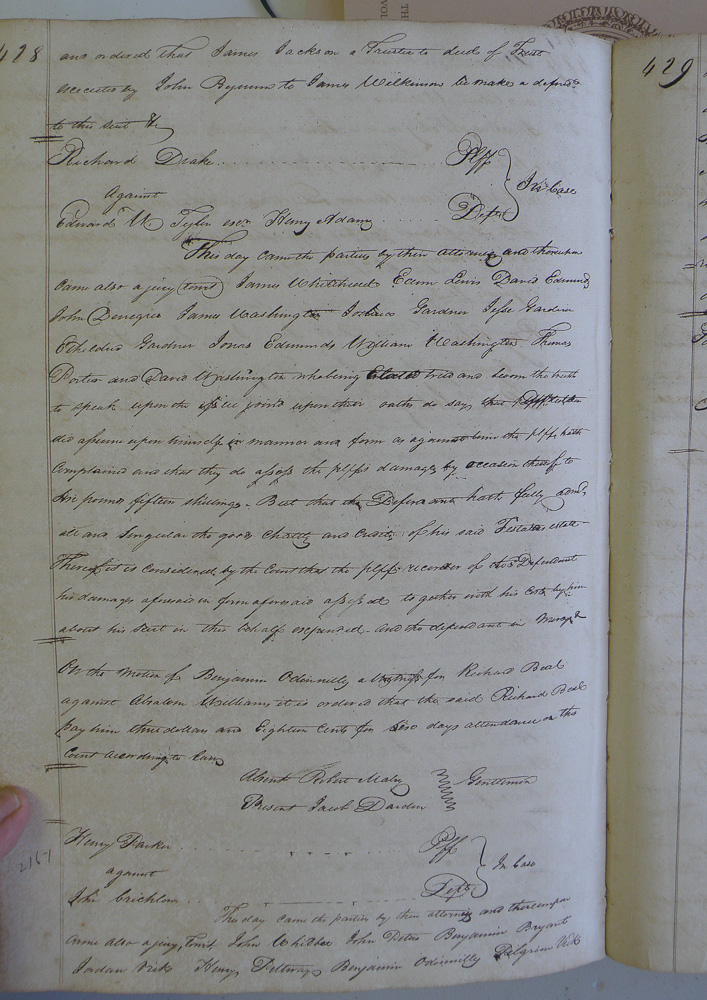 428
and ordered that James Jackson a Trustee to deed of Trust
executed by John Bynum to James Wilkinson be made a defend.t
to this suit &c
Richard Drake Plff
In Case
against
Edward W. Tyler exor Henry Adams Deft
This day came the parties by their attornies and thereupon
came also a jury (towit) James Whitehead Edwin Lewis David Edmunds
John Denegre James Washington Joshua Gardner Jesse Gardner
Etheldred Gardner Jonas Edmunds William Washington Thomas
Porter and David Washington who being tried and sworn the truth
to speak upon the issue joined upon their oaths do say that
did assume upon himself in manner and form as against him the plff hath
complained and that they do assess the plffs damages by occasion thereof to
pounds fifteen shillings. But that the Defendant hath fully adm.d
all and Singular the goods Chattles and Credits of his said Testators estate
Therefore it is considered by the Court that the plff recover of the Defendant
his damages aforesaid in form aforesaid assessed to gether with his Costs by him
about his Suit in this behalf expended. And the defendant in Mercy &
On the motion of Benjamin Odonnelly a Witness for Richard Beal
against Absalom Williams it is ordered that the said Richard Beal
pay him three dollars and Eighteen Cents for Six days attendance on this
Court according to law
Absent Robert Mabry
Gentlemen
Present Jacob Darden
Henry Parker Plff
In Case
2167
against
John Crichlow Deft
This day came the parties by their attornies and thereupon
came also a jury, towit John Whitbee John Peters Benjamin Bryant
Jordan Vick Henry Pettway Benjamin Odonnelly Pelgrim Vick
429
TH
VOL